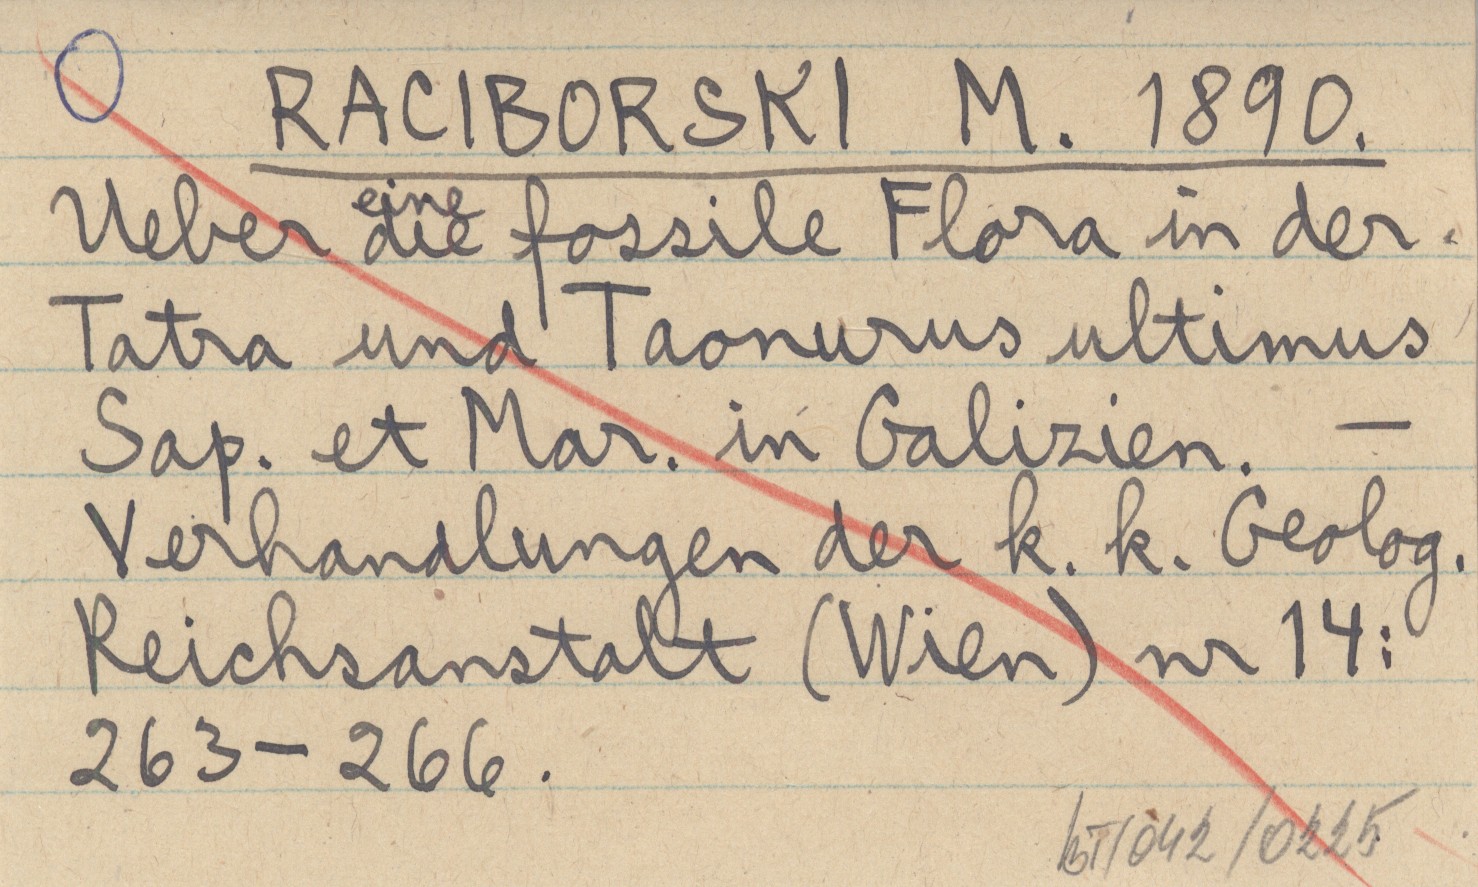 RACIBORSKI M. 1890.
Ueber eine die fossile Flora in der
Tatra und Taonurus ultimus
Sap. et Mar. in Galizien. —
Verhandlungen der k. k. Geolog.
Reichsanstalt (Wien) nr 14:
263-266.
BT/042/0225